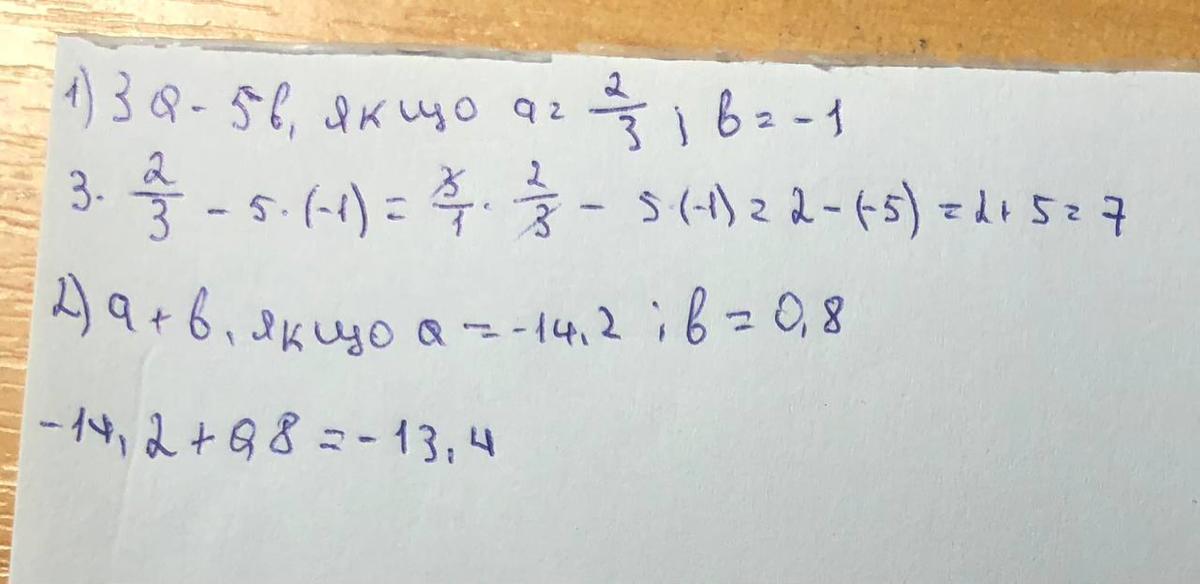 1) 3a - 5b, якщо a = 2/3 ; b = -1
3 · 2/3 - 5 · (-1) = 3/1 · 2/3 - 5 · (-1) = 2 - (-5) = 2 + 5 = 7
2) a + b, якщо a = -14,2 ; b = 0,8
-14,2 + 0,8 = -13,4